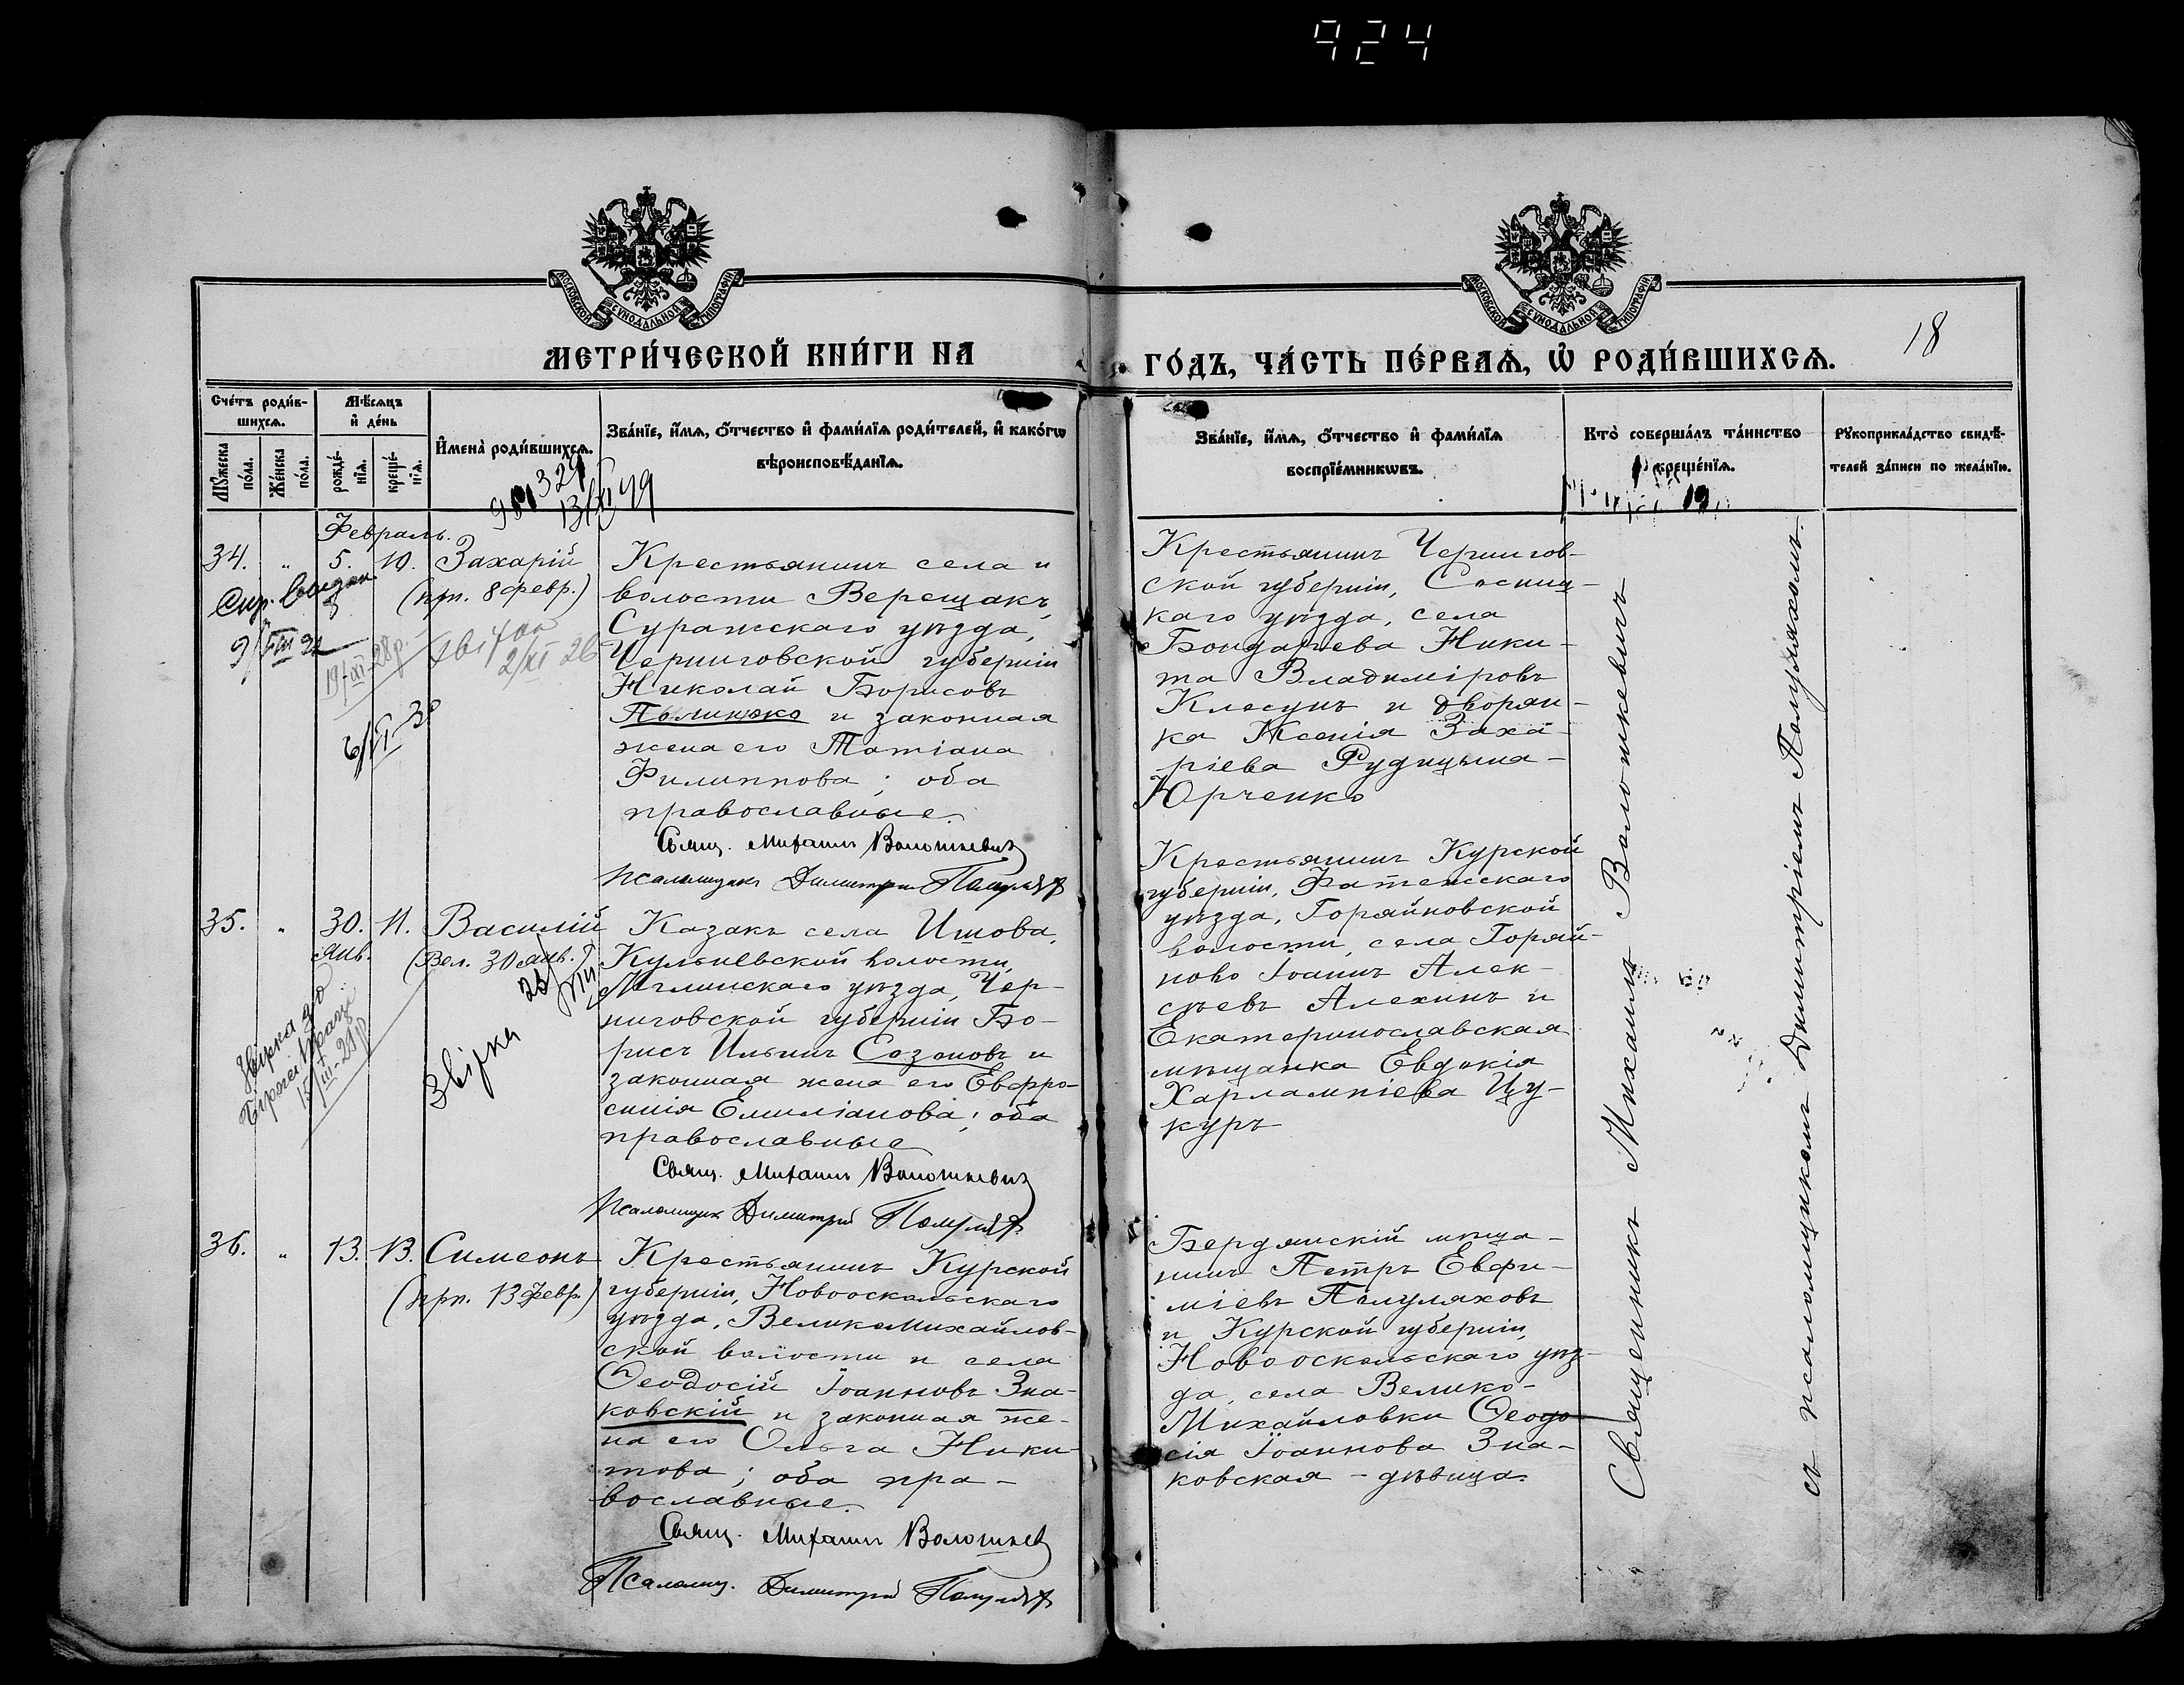 924
МОСКОВСКОЙ СУНОДАЛЬНОЙ ТИПОГРАФІИ
МОСКОВСКОЙ СУНОДАЛЬНОЙ ТИПОГРАФІИ
МЕТРИ́ЧЕСКОЙ КНИ́ГИ НА
ГО́ДЪ, ЧА́СТЬ ПЕ́РВАѦ, Ѡ҆ РОДИ́ВШИХСѦ.
18
Сче́тъ роди́в-
шихсѧ.
Мꙋ́жеска
по́ла.
Же́нска
по́ла.
Мѣ́сѧцъ
и҆ де́нь
рожде́-
нїѧ.
креще́-
нїѧ.
И҆мена̀ роди́вшихсѧ.
Зва́нїе, и҆́мѧ, ѻ҆́тчество и҆ фами́лїѧ роди́телей, и҆ како́гѡ
вѣроисповѣ́данїѧ.
Зва́нїе, и҆́мѧ, ѻ҆́тчество и҆ фами́лїѧ
воспрїе́мникѡвъ.
Кто̀ соверша́лъ та́инство
креще́нїѧ.
Рꙋкоприкла́дство свидѣ́-
телей за́писи по жела́нїю.
Февраль.
34. " 5. 10. Захарій
(прп. 8 февр.)
2/XI 26
19/XI-28р.
6/VI-30
Крестьянинъ села и
волости Верещакъ,
Суражскаго уѣзда,
Черниговской губерніи
Николай Борисовъ
и законная
жена его Татіана
Филиппова; оба
православные.
Свящ. Михаилъ Волошкевич
Псаломщикъ Димитрій Полулях
Крестьянинъ Чернигов-
ской губерніи, Сосниц-
каго уѣзда, села
Бондарева Ники-
та Владиміровъ
Клесунъ и дворян-
ка Ксенія Заха-
ріева Рудицына-
Юрченко
35. " 30. 11. Василій
Янв. (Вел. 30 Янв.)
Звірка
Казакъ села Ишова,
Кульневской волости,
Мглинскаго уѣзда, Чер-
ниговской губерніи Бо-
рисъ Ильинъ Созоновъ и
законная жена его Евфро-
синія Емиліанова; оба
православные
Свящ. Михаилъ Волошкевич
Псаломщик Димитрій Полулях
Крестьянинъ Курской
губерніи, Фатежскаго
уѣзда, Горяйновской
волости, села Горяй-
ново Іоаннъ Алек-
сѣевъ Алехинъ и
Екатеринославская
мѣщанка Евдокія
Харлампіева Цу-
куръ
36. " 13. 13. Симеонъ
(прп. 13 февр.)
Крестьянинъ Курской
губерніи, Новооскольскаго
уѣзда, Великомихайлов-
ской волости и села
Ѳеодосій Іоанновъ Зна-
ковскій и законная же-
на его Ольга Ники-
това; оба пра-
вославные.
Свящ. Михаилъ Волошкев
Псаломщ. Димитрій Полулях
Бердянскій мѣща-
нинъ Петръ Евфи-
міевъ Полуляховъ
и Курской губерніи,
Новооскольскаго уѣз-
да, села Велико-
Михайловки Ѳеодо-
сія Іоаннова Зна-
ковская - дѣвица.
Священникъ Михаилъ Волошкевичъ
съ псаломщикомъ Димитріемъ Полуляхомъ